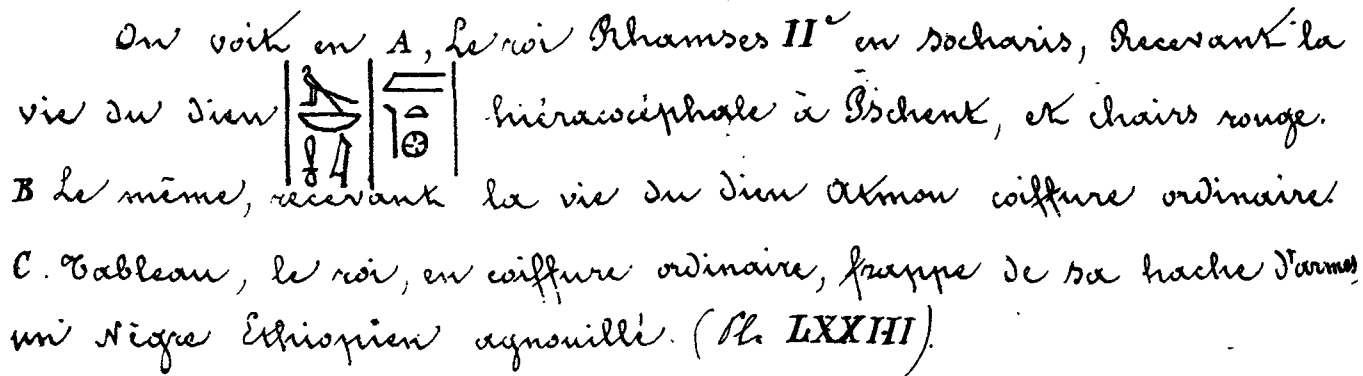 On voit en A, Le roi Rhamses II^e en socharis, Recevant la
vie du dieu hiéracocéphale à Pschent, et chairs rouge.
B Le même, recevant la vie du dieu Atmou coiffure ordinaire.
C. Tableau, le roi, en coiffure ordinaire, frappe de sa hache d'armes
un Nègre Ethiopien agnouillé. (Pl. LXXIII).